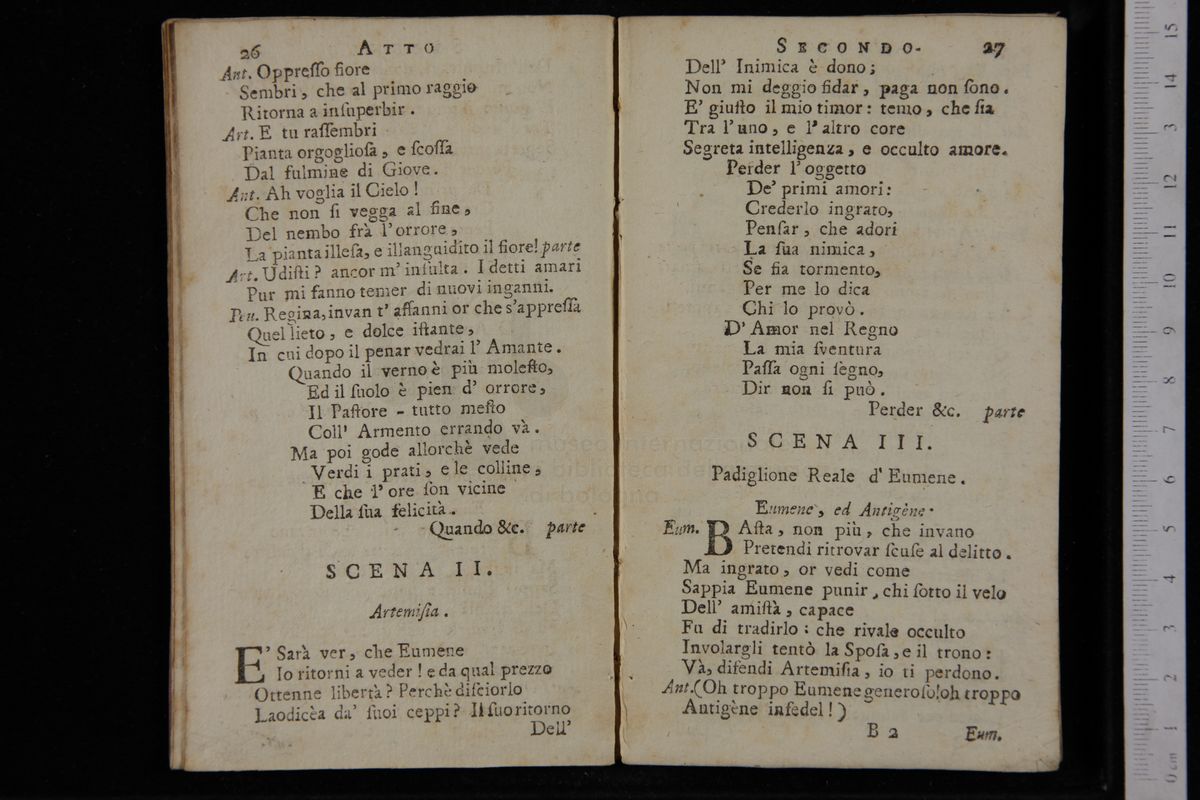 26 ATTO
Ant. Oppreſſo fiore
Sembri, che al primo raggio
Ritorna a inſuperbir.
Art. E tu raſſembri
Pianta orgoglioſa, e ſcoſſa
Dal fulmine di Giove.
Ant. Ah voglia il Cielo!
Che non ſi vegga al fine,
Del nembo frà l'orrore,
La pianta illeſa, e illanguidito il fiore! parte
Art. Udiſti? ancor m'inſulta. I detti amari
Pur mi fanno temer di nuovi inganni.
Peu. Regina, invan t'affanni or che s'appreſſa
Quel lieto, e dolce iſtante,
In cui dopo il penar vedrai l'Amante.
Quando il verno è più moleſto,
Ed il ſuolo è pien d'orrore,
Il Paſtore - tutto meſto
Coll' Armento errando và.
Ma poi gode allorchè vede
Verdi i prati, e le colline,
E che l'ore ſon vicine
Della ſua felicità.
Quando &c. parte
SCENA II.
Artemiſia.
E' Sarà ver, che Eumene
Io ritorni a veder! e da qual prezzo
Ottenne libertà? Perchè diſciorlo
Laodicèa da' ſuoi ceppi? Il ſuo ritorno
Dell'
SECONDO. 27
Dell' Inimica è dono;
Non mi deggio fidar, paga non ſono.
E' giuſto il mio timor: temo, che ſia
Tra l'uno, e l'altro core
Segreta intelligenza, e occulto amore.
Perder l'oggetto
De' primi amori:
Crederlo ingrato,
Penſar, che adori
La ſua nimica,
Se ſia tormento,
Per me lo dica
Chi lo provò.
D'Amor nel Regno
La mia ſventura
Paſſa ogni ſegno,
Dir non ſi può.
Perder &c. parte
SCENA III.
Padiglione Reale d'Eumene.
Eumene, ed Antigène.
Eum. BAſta, non più, che invano
Pretendi ritrovar ſcuſe al delitto.
Ma ingrato, or vedi come
Sappia Eumene punir, chi ſotto il velo
Dell' amiſtà, capace
Fu di tradirlo: che rivale occulto
Involargli tentò la Spoſa, e il trono:
Và, difendi Artemiſia, io ti perdono.
Ant. (Oh troppo Eumene generoſo! oh troppo
Antigène infedel!)
B 2 Eum.